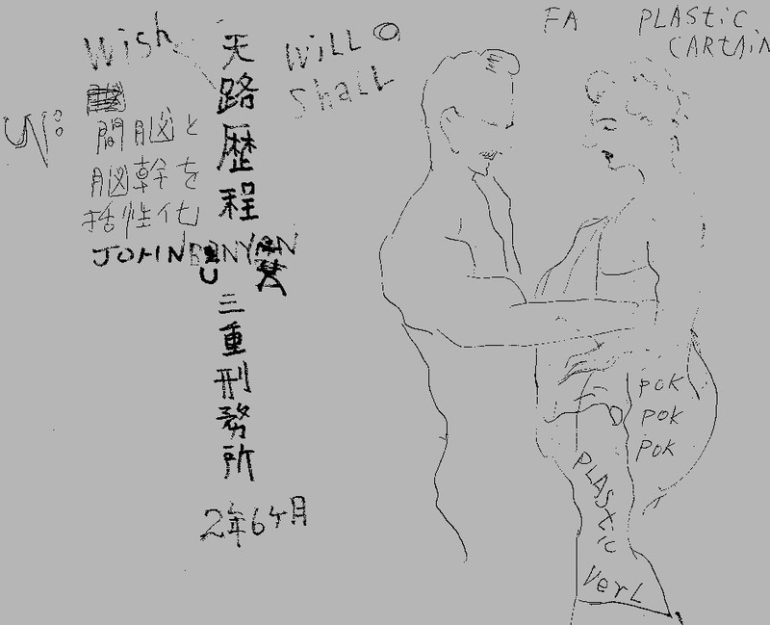 Wish
UN:
間脳と
脳幹を
括性化
天路歴程
WiLL
ShaLL
JOHN BUNYAN
三重刑務所
2年6ケ月
FA
PLAStiC
CARtAiN
POK
POK
POK
PLAStiC
VerL